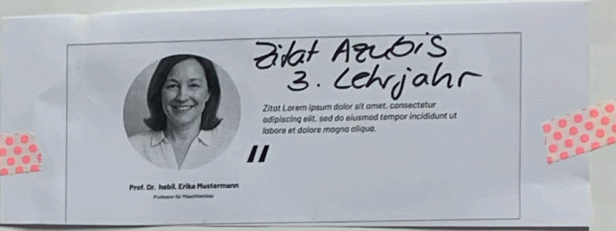 Zitat Azubis
3. Lehrjahr
Zitat Lorem ipsum dolor sit amet, consectetur
adipiscing elit, sed do eiusmod tempor incididunt ut
labore et dolore magna aliqua.
"
Prof. Dr. habil. Erika Mustermann
Professor für Maschinenbau